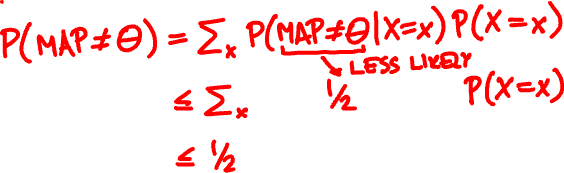 P(MAP≠Θ) = Σₓ P(MAP≠Θ|X=x) P(X=x)
LESS LIKELY
≤ Σₓ 1/2 P(X=x)
≤ 1/2